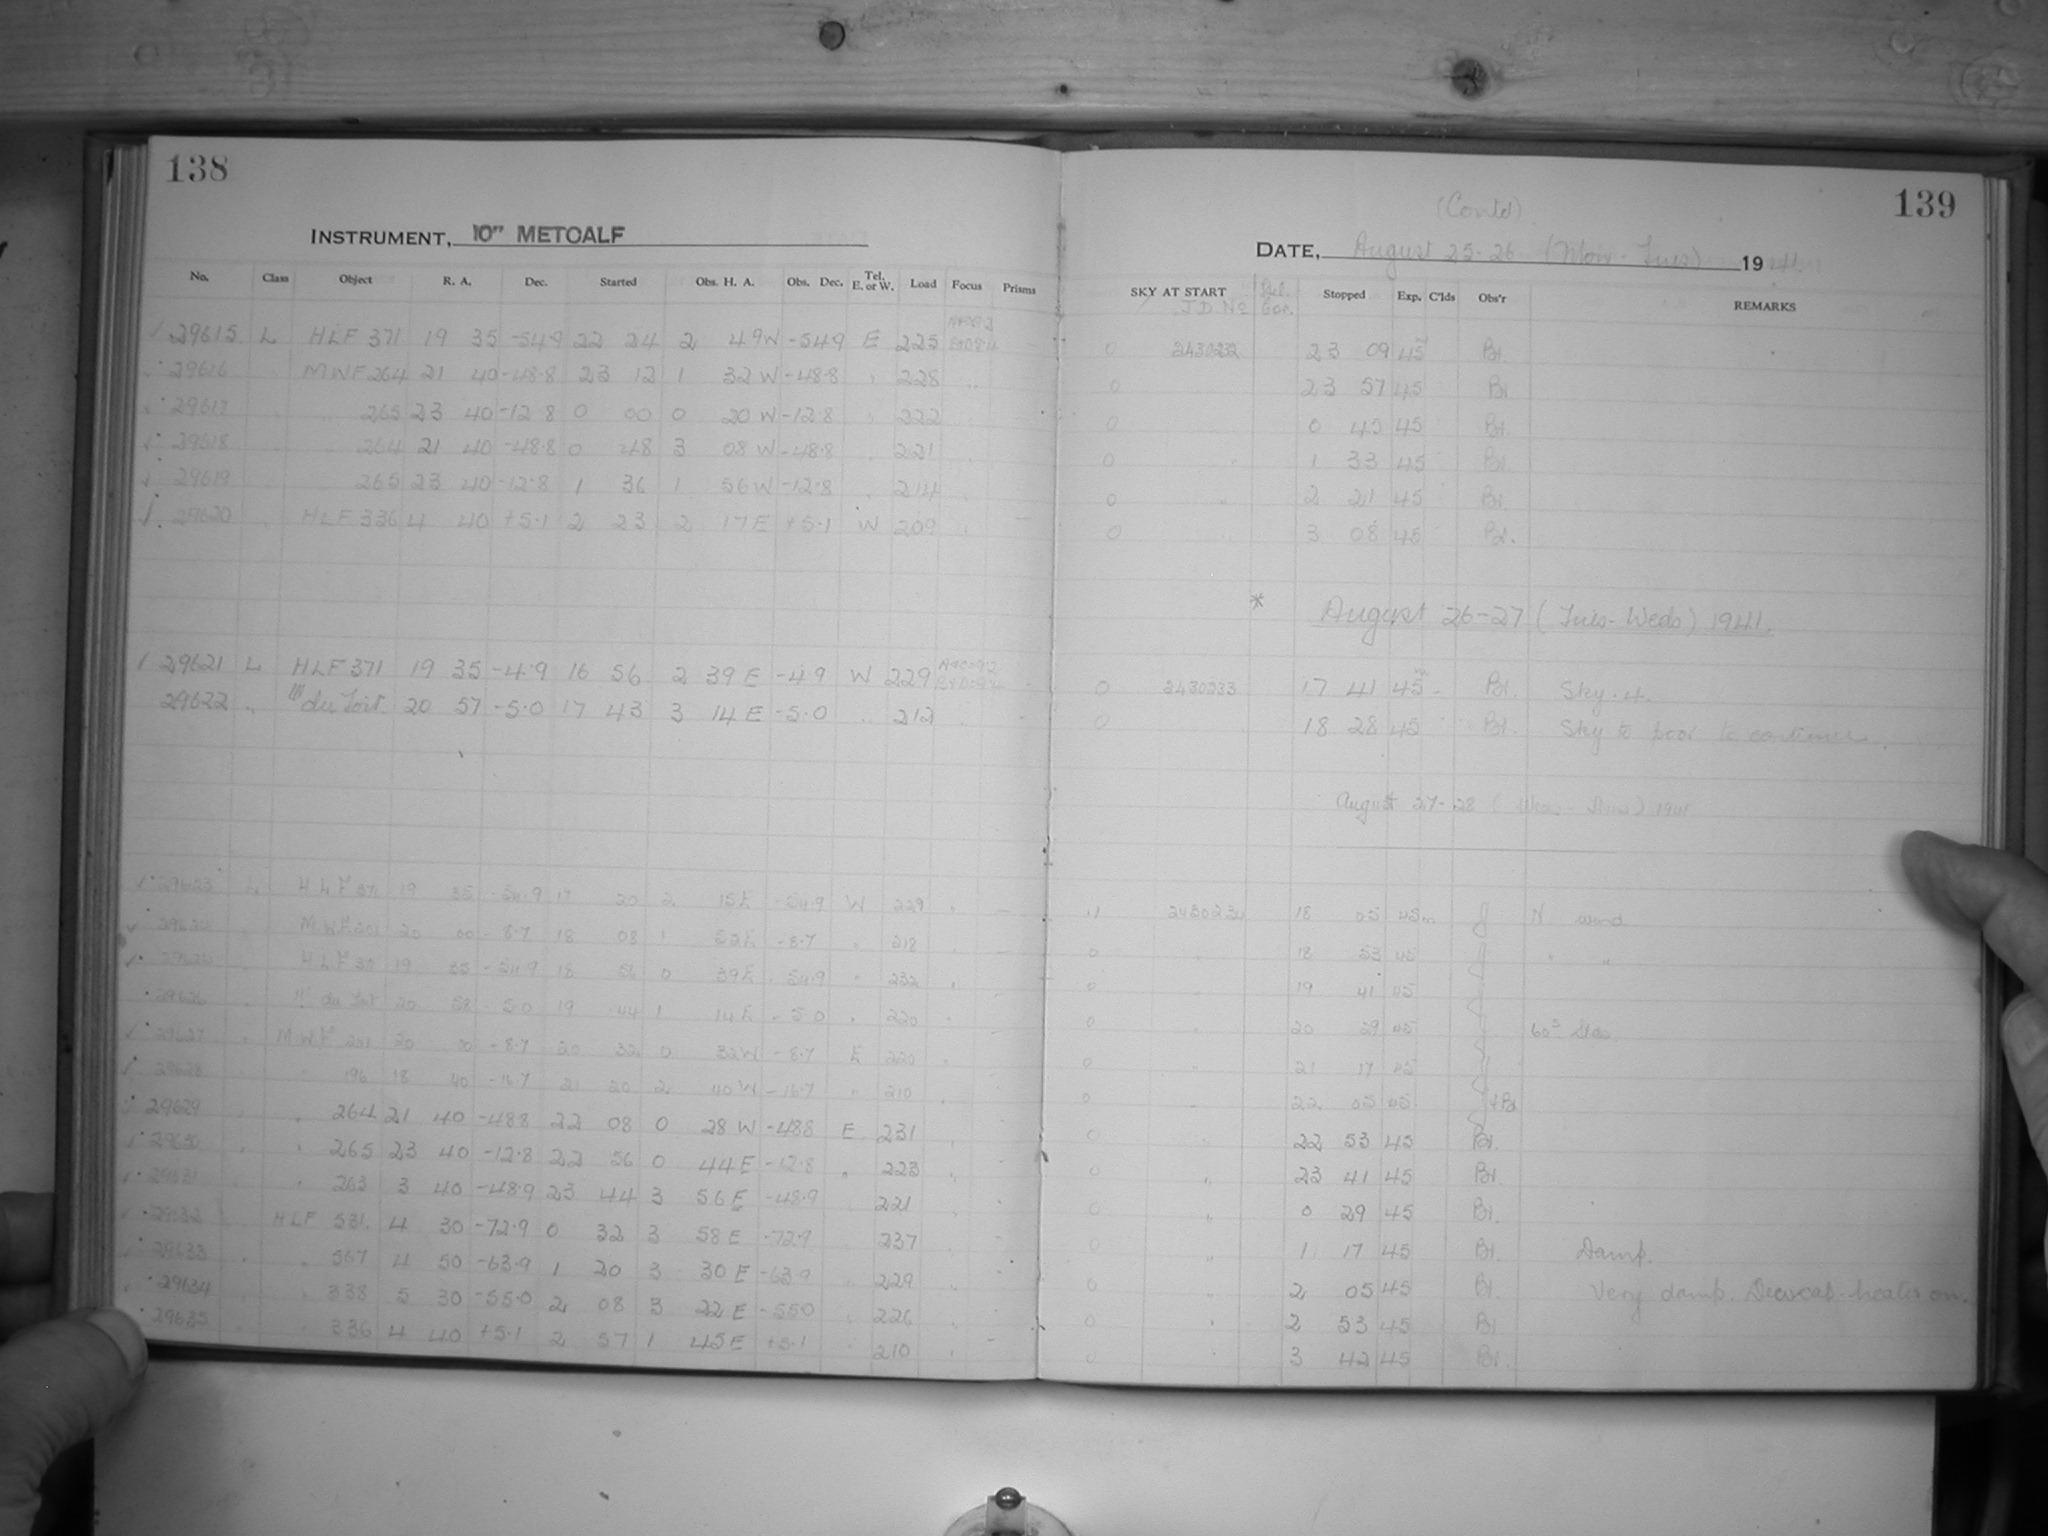 138
INSTRUMENT, 10" METCALF
No. Class Object R. A. Dec. Started Obs. H. A. Obs. Dec. Tel. E. or W. Load Focus Prisms
29615 L HLF 371 19 35 -54.9 22 24 2 49 W -54.9 E 225
29616 MWF 264 21 40 -48.8 23 12 1 32 W -48.8 " 228
29617 265 23 40 -12.8 0 00 0 20 W -12.8 222
29618 264 21 40 -48.8 0 48 3 08 W -48.8 221
29619 265 23 40 -12.8 1 36 1 56 W -12.8 214
29620 HLF 336 4 40 +5.1 2 23 2 17 E +5.1 W 209
29621 L HLF 371 19 35 -4.9 16 56 2 39 E -4.9 W 229
29622 " du Toit 20 57 -5.0 17 43 3 14 E -5.0 " 212
29623 L HLF 371 19 35 -54.9 17 20 2 15 E -54.9 W 229
20 00 -8.7 18 08 1 52 E -8.7 " 218
HLF 371 19 35 -54.9 18 56 0 39 E -54.9 " 232
29626 du Toit 20 58 -5.0 19 44 1 14 E -5.0 " 220
29627 MWF 201 20 00 -8.7 20 32 0 32 W -8.7 E 220
29628 196 18 40 -16.7 21 20 2 40 W -16.7 " 210
29629 " 264 21 40 -48.8 22 08 0 28 W -48.8 E 231
29630 " 265 23 40 -12.8 22 56 0 44 E -12.8 " 223
29631 " 263 3 40 -48.9 23 44 3 56 E -48.9 221
29632 HLF 531 4 30 -72.9 0 32 3 58 E -72.9 237
29633 " 567 4 50 -63.9 1 20 3 30 E -63.9 229
29634 " 338 5 30 -55.0 2 08 3 22 E -55.0 226
29635 336 4 40 +5.1 2 57 1 45 E +5.1 210
(Contd)
139
DATE, August 25-26 (Mon-Tues) 1941
SKY AT START J.D. No Stopped Exp. C'lds Obs'r REMARKS
0 2430232 23 09 45m Bl.
0 23 57 45 Bl.
0 0 45 45 Bl.
0 1 33 45 Bl.
0 " 2 21 45 Bl.
0 " 3 08 45 Bl.
* August 26-27 (Tues-Weds) 1941.
0 2430233 17 41 45m Bl. Sky .4.
0 18 28 45 Bl. Sky to poor to continue.
August 27-28 (Weds-Thurs) 1941
2430234 18 05 45m J N wind
0 " 18 53 45 J " "
0 " 19 41 45
0 " 20 29 45
0 " 21 17 45
0 " 22 05 45
0 " 22 53 45 Bl.
0 " 23 41 45 Bl.
0 " 0 29 45 Bl.
0 " 1 17 45 Bl. Damp.
0 " 2 05 45 Bl. Very damp. Dewcap-heater on.
0 " 2 53 45 Bl
0 " 3 42 45 Bl.